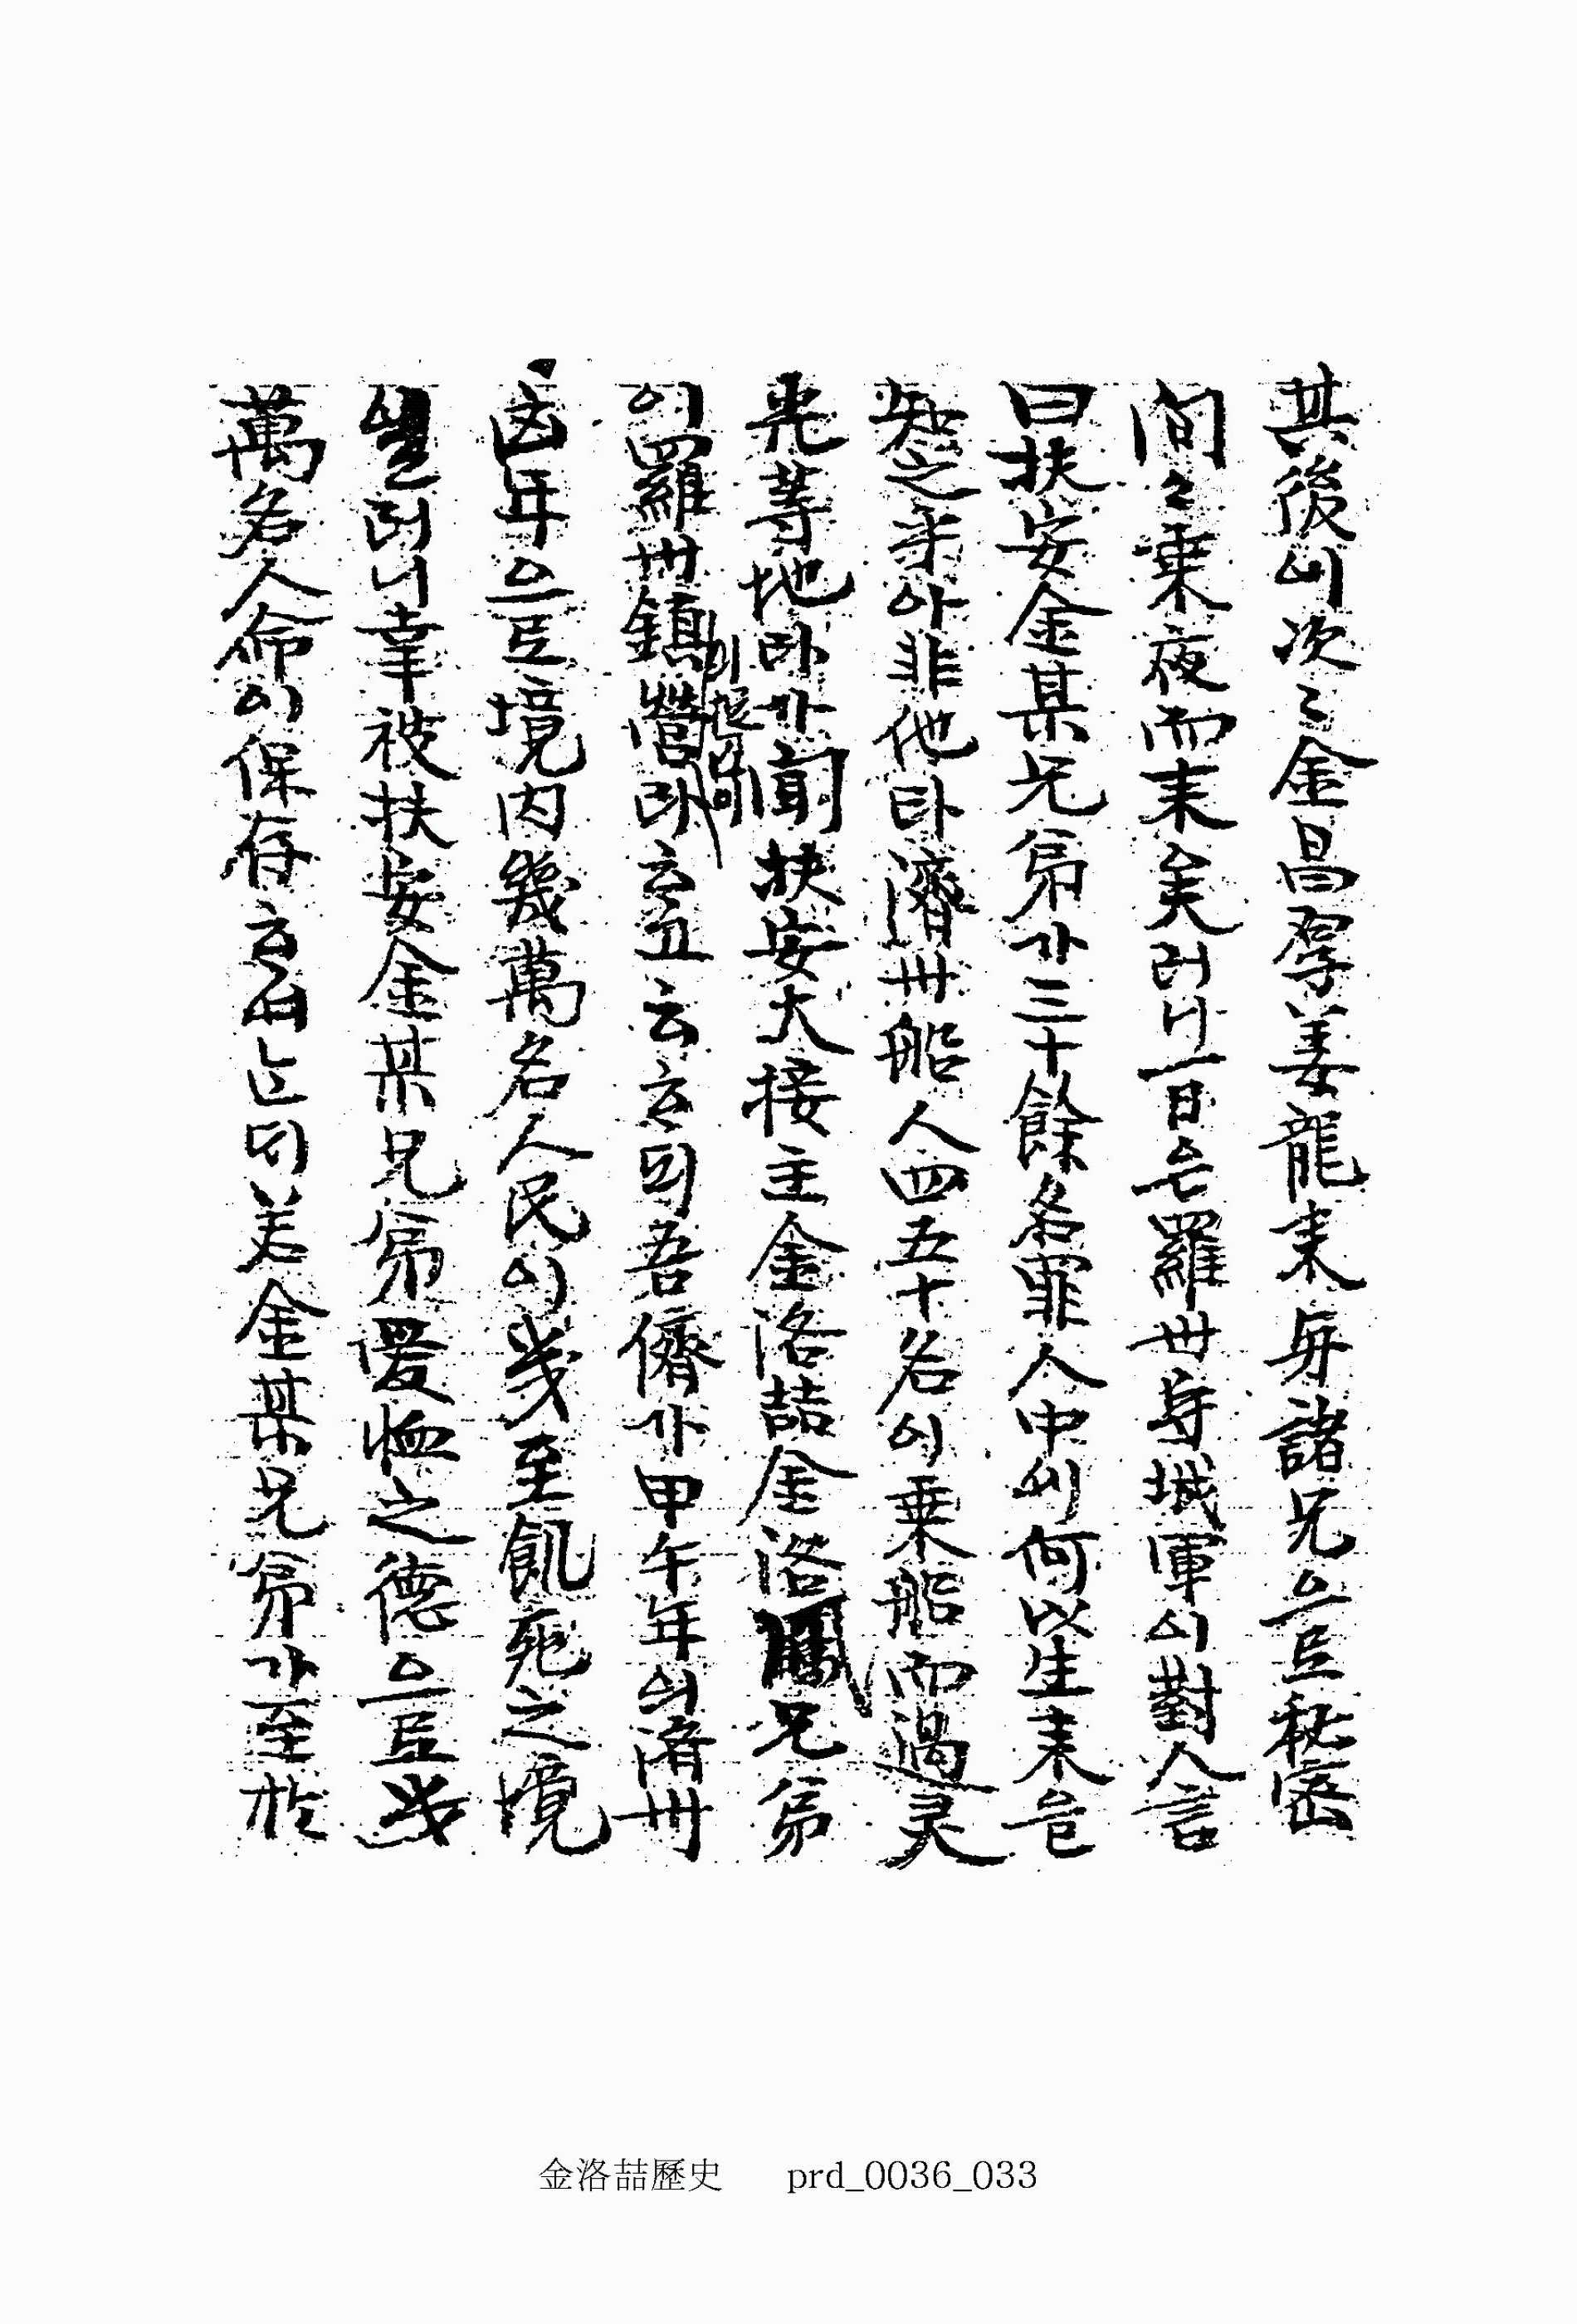 其後에次〻金昌厚姜龍来每諸兄으로秘密
間〻乘夜而来矣러니一日은羅州守城軍이對人言
曰扶安金某兄弟가三十餘名罪人中에何以生来을
知之乎아非他라濟州船人四五十名이乘船而過灵
光等地라가聞扶安大接主金洛喆金洛葑兄弟
이羅州鎭營에捉囚라하고云云하되吾儕가甲午年의濟州
凶年으로境内幾萬名人民이幾至飢死之境
일너니幸被扶安金某兄弟愛恤之德으로幾
萬名人命이保存하엿는되若金某兄弟가至於
金洛喆歷史 prd_0036_033